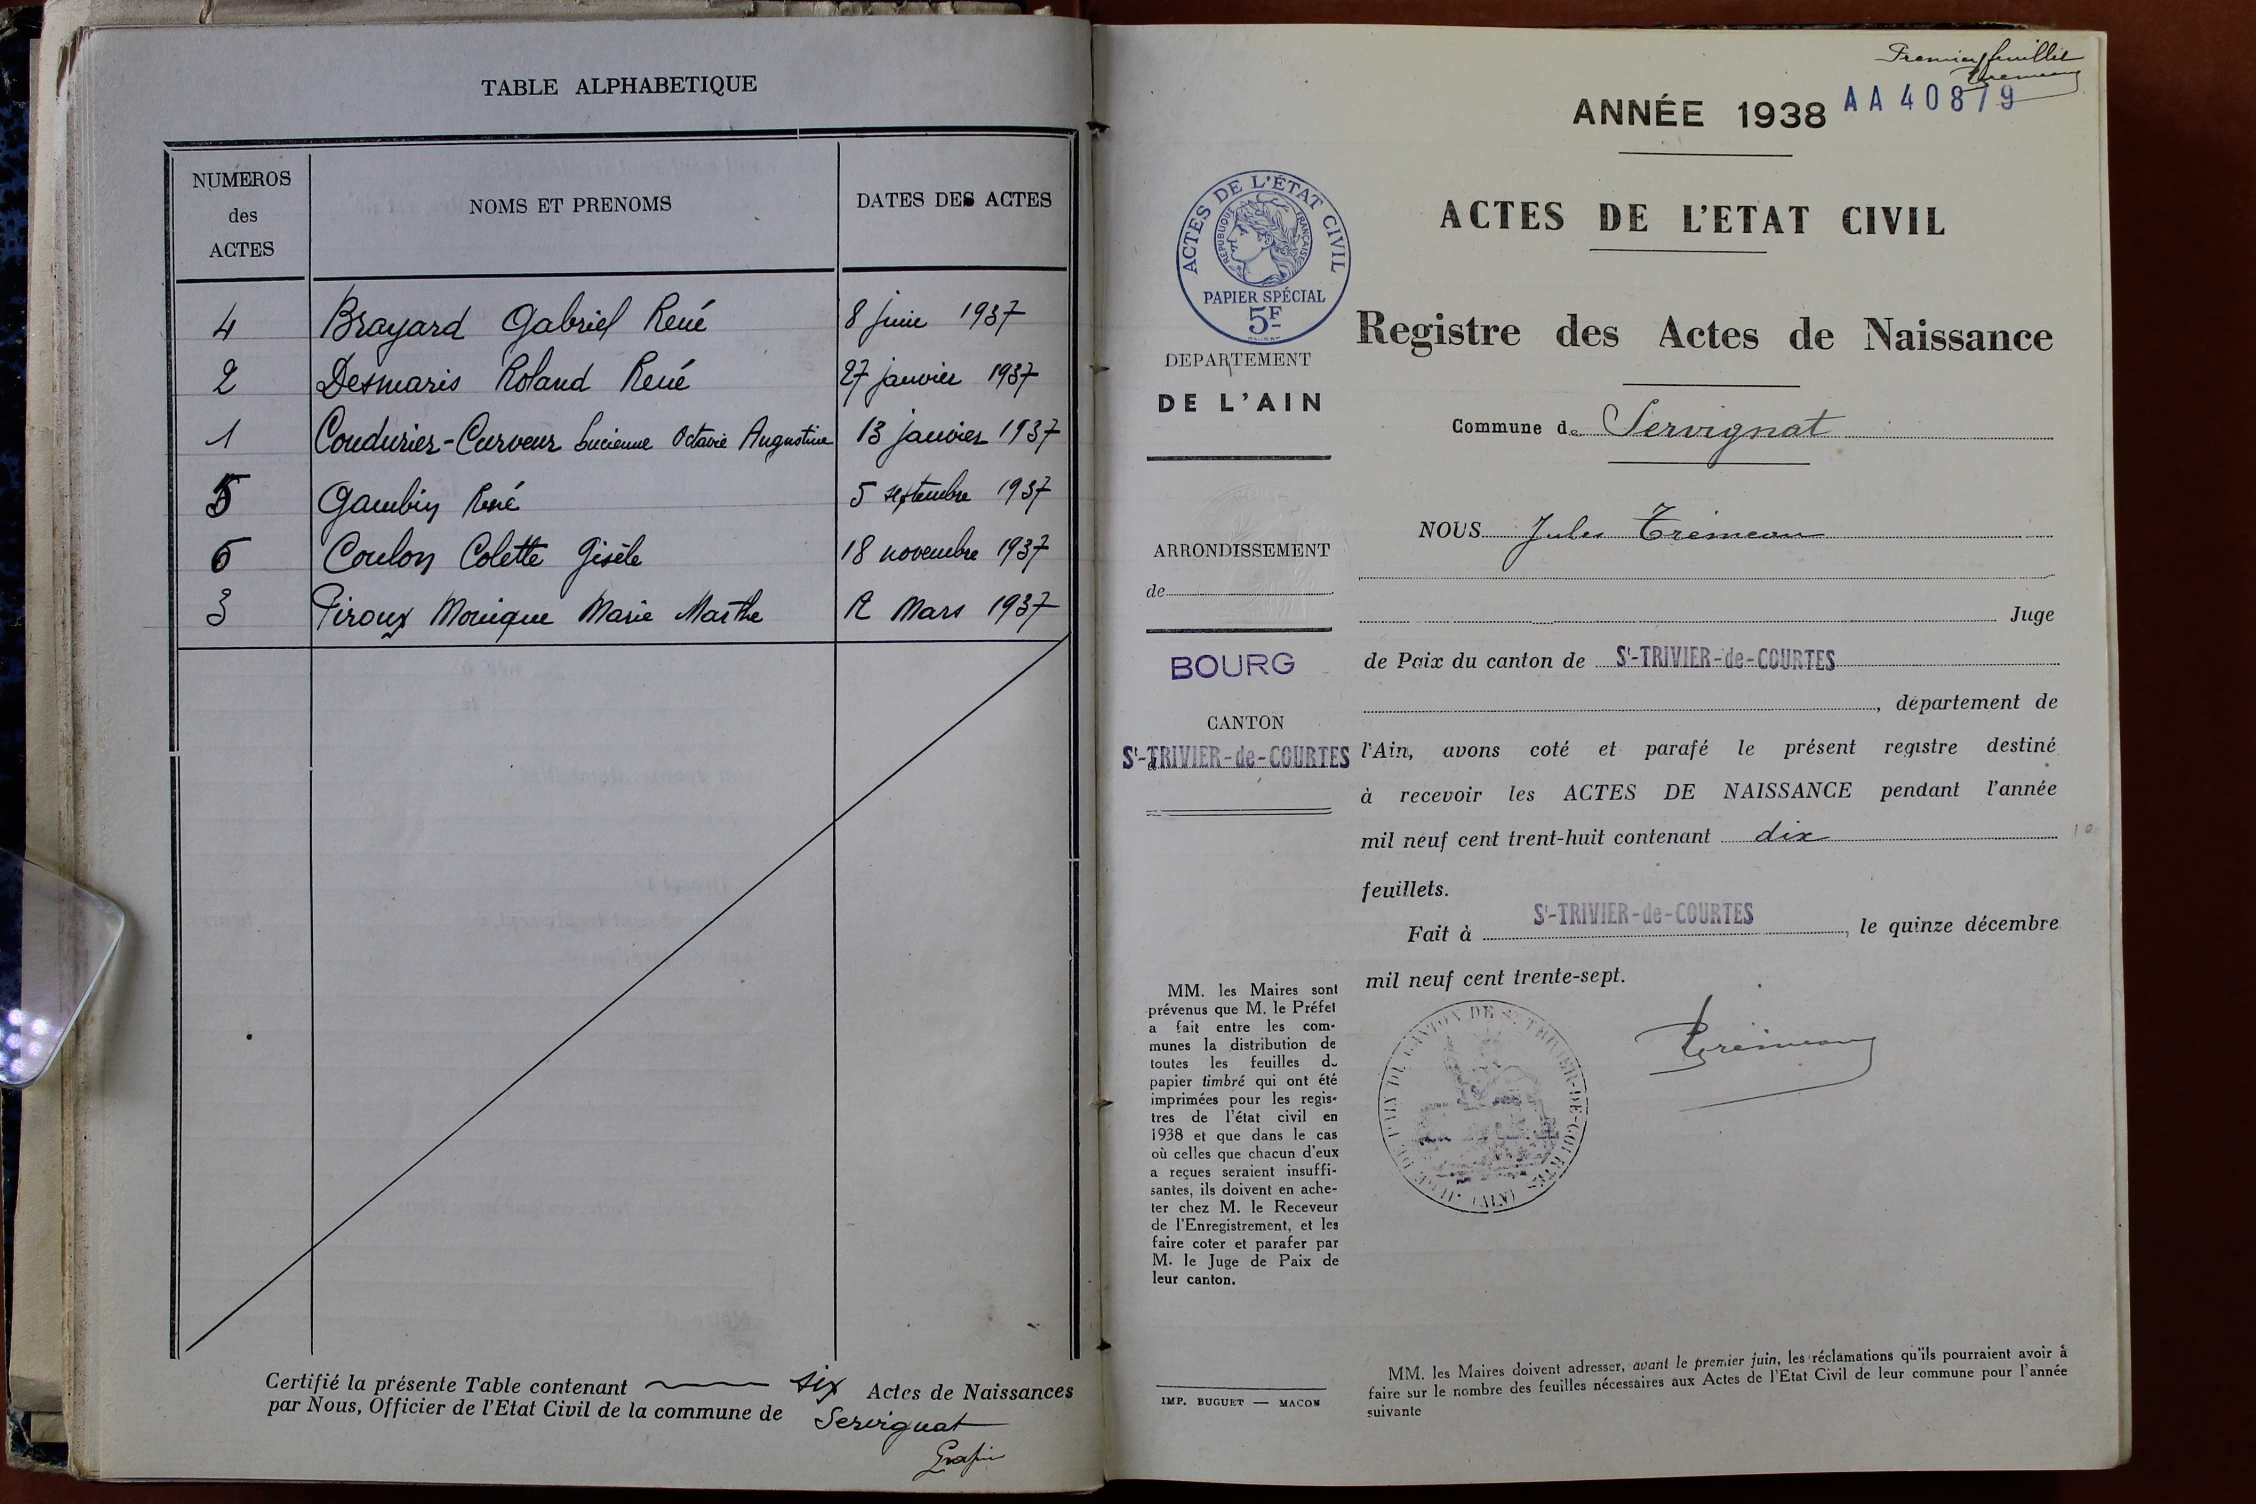 TABLE ALPHABETIQUE
NUMEROS
des
ACTES
NOMS ET PRENOMS
DATES DES ACTES
4 Brayard Gabriel René 8 juin 1937
2 Desmaris Roland René 27 janvier 1937
1 Coudurier-Curveur Lucienne Octavie Augustine 13 janvier 1937
5 Gambin René 5 septembre 1937
6 Coulon Colette Gisèle 18 novembre 1937
3 Piroux Monique Marie Marthe Mars 1937
Certifié la présente Table contenant six Actes de Naissances
par Nous, Officier de l'Etat Civil de la commune de Servignat
Premier feuillet
Trémeau
ANNÉE 1938
AA 40879
ACTES DE L'ETAT CIVIL
Registre des Actes de Naissance
Commune de Servignat
ACTES DE L'ÉTAT CIVIL
REPUBLIQUE FRANÇAISE
PAPIER SPÉCIAL
5F
DEPARTEMENT
DE L'AIN
ARRONDISSEMENT
de
BOURG
CANTON
St-TRIVIER-de-COURTES
MM. les Maires sont
prévenus que M. le Préfet
a fait entre les com-
munes la distribution de
toutes les feuilles de
papier timbré qui ont été
imprimées pour les regis-
tres de l'état civil en
1938 et que dans le cas
où celles que chacun d'eux
a reçues seraient insuffi-
santes, ils doivent en ache-
ter chez M. le Receveur
de l'Enregistrement, et les
faire coter et parafer par
M. le Juge de Paix de
leur canton.
IMP. BUGUET — MACON
NOUS Jules Trémeau
Juge
de Paix du canton de St-TRIVIER-de-COURTES
, département de
l'Ain, avons coté et parafé le présent registre destiné
à recevoir les ACTES DE NAISSANCE pendant l'année
mil neuf cent trent-huit contenant dix
10
feuillets.
Fait à St-TRIVIER-de-COURTES, le quinze décembre
mil neuf cent trente-sept.
Trémeau
JUGE DE PAIX DU CANTON DE St TRIVIER-DE-COURTES (AIN)
MM. les Maires doivent adresser, avant le premier juin, les réclamations qu'ils pourraient avoir à
faire sur le nombre des feuilles nécessaires aux Actes de l'Etat Civil de leur commune pour l'année
suivante